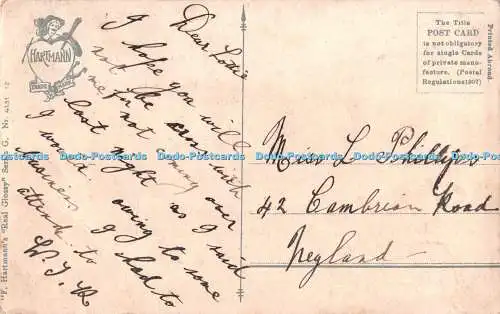 HARTMANN
TRADE MARK
"F. Hartmann's "Real Glossy" Series G.
Dear
I hope you will
not be cross with
me for not coming over
last night as I said
I would owing to some
business I had to
attend to
W.J.R
The Title
POST CARD
is not obligatory
for single Cards
of private manu-
facture. (Postal
Regulations 1907)
Printed Abroad
Miss L Phillips
42 Cambrian Road
Neyland
Dodo-Postcards Dodo-Postcards Dodo-Postcards Dodo-Postcards Dodo-Postcards Dodo-Postcards